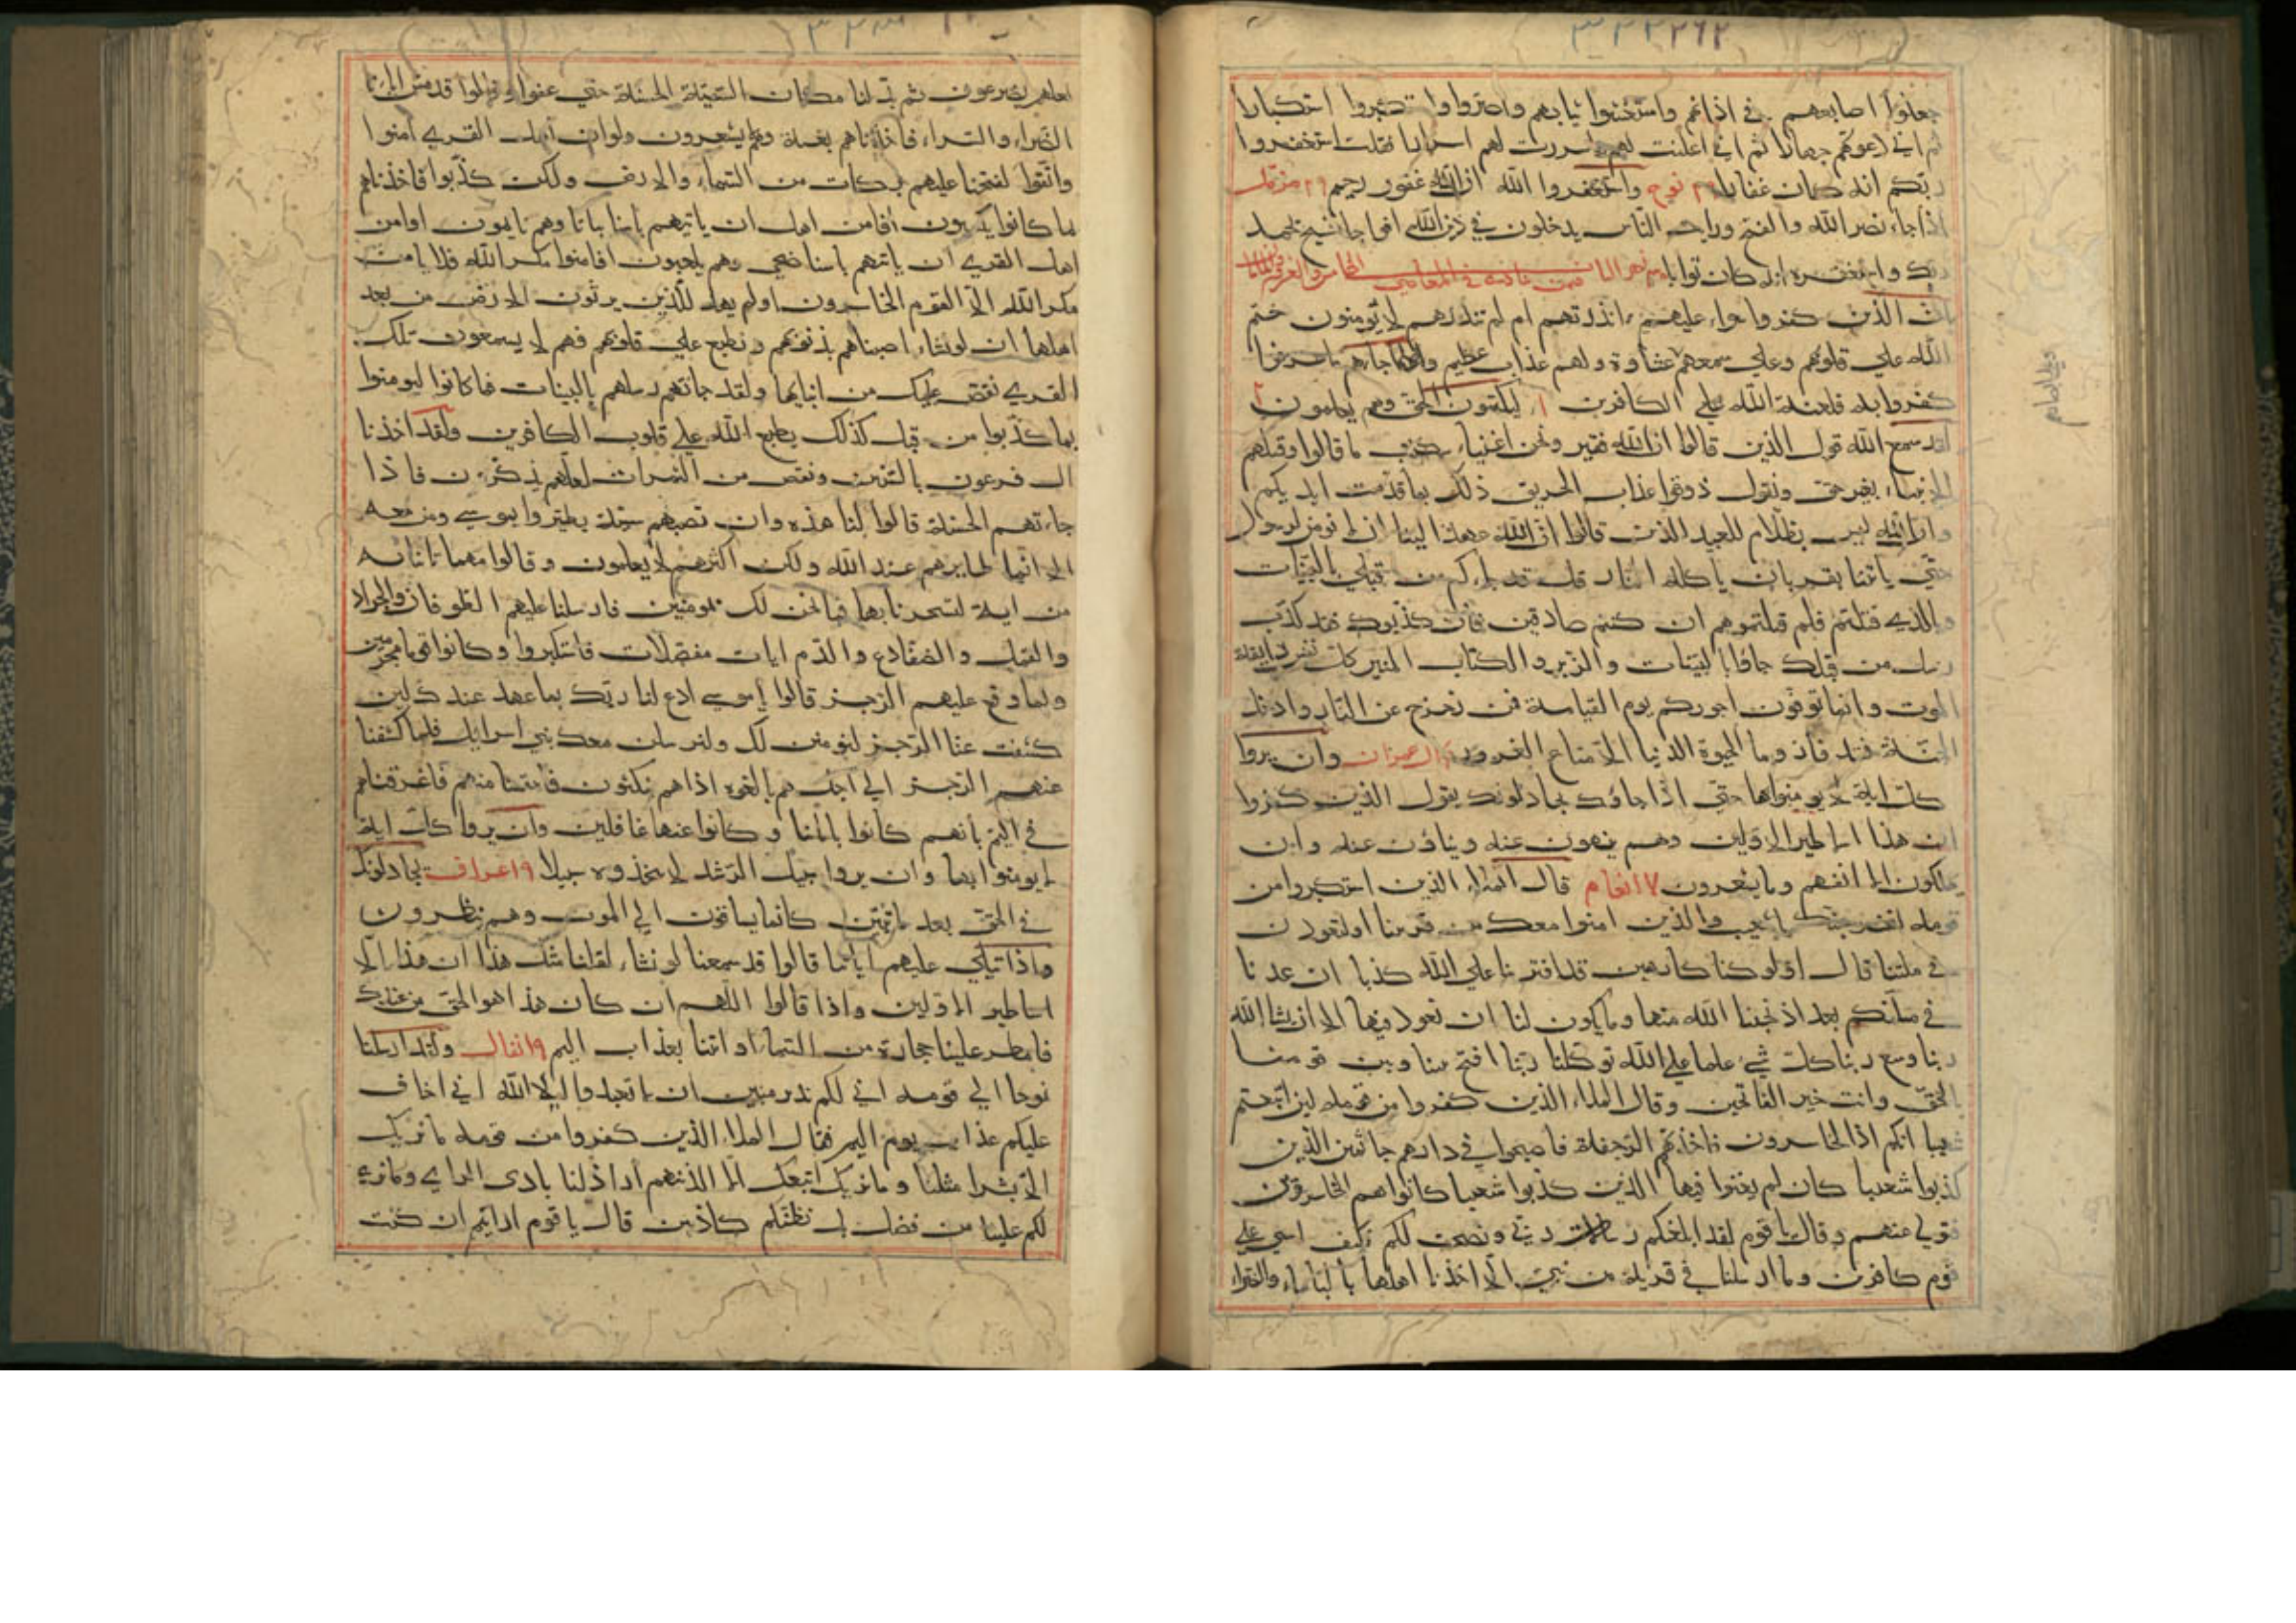 جعلوا اصابعهم في اذانهم واستغشوا ثيابهم واصروا واستكبروا استكبارا
ثم اني دعوتهم جهارا ثم اني اعلنت لهم واسررت لهم اسرارا فقلت استغفروا
ربكم انه كان غفارا نوح واستغفروا الله ان الله غفور رحيم مزمل
اذا جاء نصر الله والفتح ورايت الناس يدخلون في دين الله افواجا فسبح بحمد
ربك واستغفره انه كان توابا
ان الذين كفروا سواء عليهم ءانذرتهم ام لم تنذرهم لا يؤمنون ختم
الله علي قلوبهم وعلي سمعهم غشاوة ولهم عذاب عظيم فلما جاءهم ما عرفوا
كفروا به فلعنة الله علي الكافرين ليكتمون الحق وهم يعلمون
لقد سمع الله قول الذين قالوا ان الله فقير ونحن اغنياء سنكتب ما قالوا وقتلهم
الانبياء بغير حق ونقول ذوقوا عذاب الحريق ذلك بما قدمت ايديكم
وان الله ليس بظلام للعبيد الذين قالوا ان الله عهد الينا ان لا نومن لرسول
حتي ياتينا بقربان تاكله النار قل قد جاءكم من قبلي بالبينات
وبالذي قلتم فلم قتلتموهم ان كنتم صادقين فان كذبوك فقد كذب
رسل من قبلك جاؤا بالبينات والزبر والكتاب المنير كل نفس ذايقة
الموت وانما توفون اجوركم يوم القيامة فمن زحزح عن النار وادخل
الجنة فقد فاز وما الحيوة الدنيا الا متاع الغرور ال عمران وان يروا
كل اية لا يومنوا بها حتي اذا جاؤك يجادلونك يقول الذين كفروا
ان هذا الا اساطير الاولين وهم ينهون عنه وينأون عنه وان
يهلكون الا انفسهم وما يشعرون ٧ انعام قال الملاء الذين استكبروا من
قومه لنخرجنك يا شعيب والذين امنوا معك من قريتنا او لتعودن
في ملتنا قال اولو كنا كارهين قد افترينا علي الله كذبا ان عدنا
في ملتكم بعد اذ نجينا الله منها وما يكون لنا ان نعود فيها الا ان يشا الله
ربنا وسع ربنا كل شيء علما علي الله توكلنا ربنا افتح بيننا وبين قومنا
بالحق وانت خير الفاتحين وقال الملاء الذين كفروا من قومه لين اتبعتم
شعيبا انكم اذا لخاسرون فاخذتهم الرجفة فاصبحوا في دارهم جاثمين الذين
كذبوا شعيبا كان لم يغنوا فيها الذين كذبوا شعيبا كانوا هم الخاسرين
فتولي عنهم وقال يا قوم لقد ابلغتكم رسالات ربي ونصحت لكم فكيف اسي علي
قوم كافرين وما ارسلنا في قرية من نبي الا اخذنا اهلها بالباساء والضراء
لعلهم يضرعون ثم بدلنا مكان السيئة الحسنة حتي عفوا وقالوا قد مس اباءنا
الضراء والسراء فاخذناهم بغتة وهم لا يشعرون ولو ان اهل القري امنوا
واتقوا لفتحنا عليهم بركات من السماء والارض ولكن كذبوا فاخذناهم
بما كانوا يكسبون افامن اهل ان ياتيهم باسنا بياتا وهم نايمون اوامن
اهل القري ان ياتيهم باسنا ضحي وهم يلعبون افامنوا مكر الله فلا يامن
مكر الله الا القوم الخاسرون اولم يهد للذين يرثون الارض من بعد
اهلها ان لو نشاء اصبناهم بذنوبهم ونطبع علي قلوبهم فهم لا يسمعون تلك
القري نقص عليك من انبايها ولقد جاتهم رسلهم بالبينات فما كانوا ليومنوا
بما كذبوا من قبل كذلك يطبع الله علي قلوب الكافرين ولقد اخذنا
ال فرعون بالسنين ونقص من الثمرات لعلهم يذكرون فاذا
جاءتهم الحسنة قالوا لنا هذه وان تصبهم سيئة يطيروا بموسي ومن معه
الا انما طايرهم عند الله ولكن اكثرهم لا يعلمون وقالوا مهما تاتنا به
من اية لتسحرنا بها فما نحن لك بمومنين فارسلنا عليهم الطوفان والجراد
والقمل والضفادع والدم ايات مفصلات فاستكبروا وكانوا قوما مجرمين
ولما وقع عليهم الرجز قالوا يا موسي ادع لنا ربك بما عهد عندك لين
كشفت عنا الرجز لنومنن لك ولنرسلن معك بني اسرايل فلما كشفنا
عنهم الرجز الي اجل هم بالغوه اذا هم ينكثون فانتقمنا منهم فاغرقناهم
في اليم بانهم كانوا باياتنا وكانوا عنها غافلين وان يروا كل اية
لا يومنوا بها وان يروا سبيل الرشد لا يتخذوه سبيلا ٩ اعراف يجادلونك
في الحق بعد ما تبين كانما يساقون الي الموت وهم ينظرون
واذا تتلي عليهم اياتنا قالوا قد سمعنا لو نشاء لقلنا مثل هذا ان هذا الا
اساطير الاولين واذا قالوا اللهم ان كان هذا هو الحق من عندك
فامطر علينا حجارة من السماء او ائتنا بعذاب اليم ٩ انفال ولقد ارسلنا
نوحا الي قومه اني لكم نذير مبين ان لا تعبدوا الا الله اني اخاف
عليكم عذاب يوم اليم فقال الملاء الذين كفروا من قومه ما نريك
الا بشرا مثلنا وما نريك اتبعك الا الذين هم اراذلنا بادي الراي وما نري
لكم علينا من فضل بل نظنكم كاذبين قال يا قوم ارايتم ان كنت